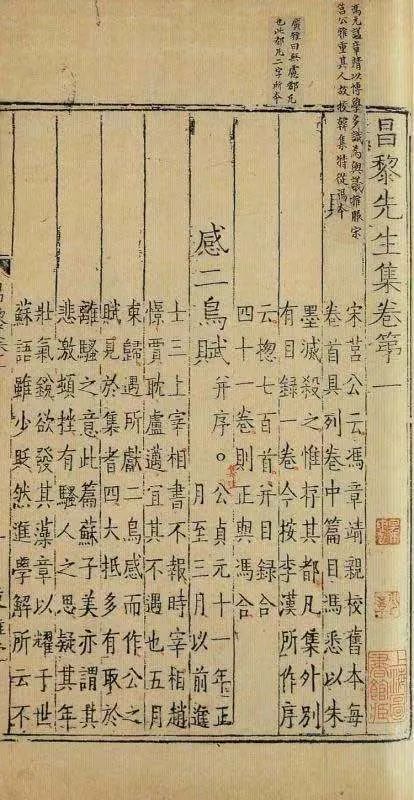 馮元謚章靖以博學多識為輿議推服宋
莒公雅重其人故校韓集特從馮本
廣雅曰無慮都凡
也此都凡二字所本
昌黎先生集卷第一
宋莒公云馮章靖親校舊本每
卷首具列卷中篇目馮悉以朱
墨滅殺之惟存其都凡集外别
有目録一卷今按李漢所作序
云揔七百首并目録合
四十一卷則正與馮合
感二鳥賦并序。公貞元十一年正
月至三月以前進
士三上宰相書不報時宰相趙
憬賈耽盧邁宜其不遇也五月
東歸遇所獻二鳥感而作公之
賦見於集者四大抵多有取於
離騷之意此篇蘇子美亦謂其
悲激頓挫有騷人之思疑其年
壯氣鋭欲發其藻章以耀于世
蘇語雖少貶然進學解所云不
上海圖書館藏